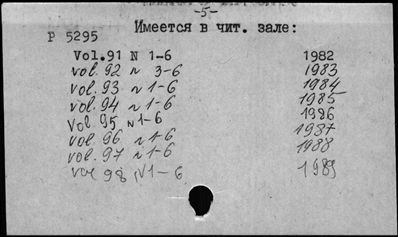 -5-
Имеется в чит. зале:
P 5295
Vol.91 N 1-6 1982
vol. 92 N 3-6 1983
vol. 93 N 1-6 1984
vol. 94 N 1-6 1985
Vol 95 N 1-6 1986
vol. 96 N 1-6 1987
vol. 97 N 1-6 1988
vol 98 N 1-6 1989